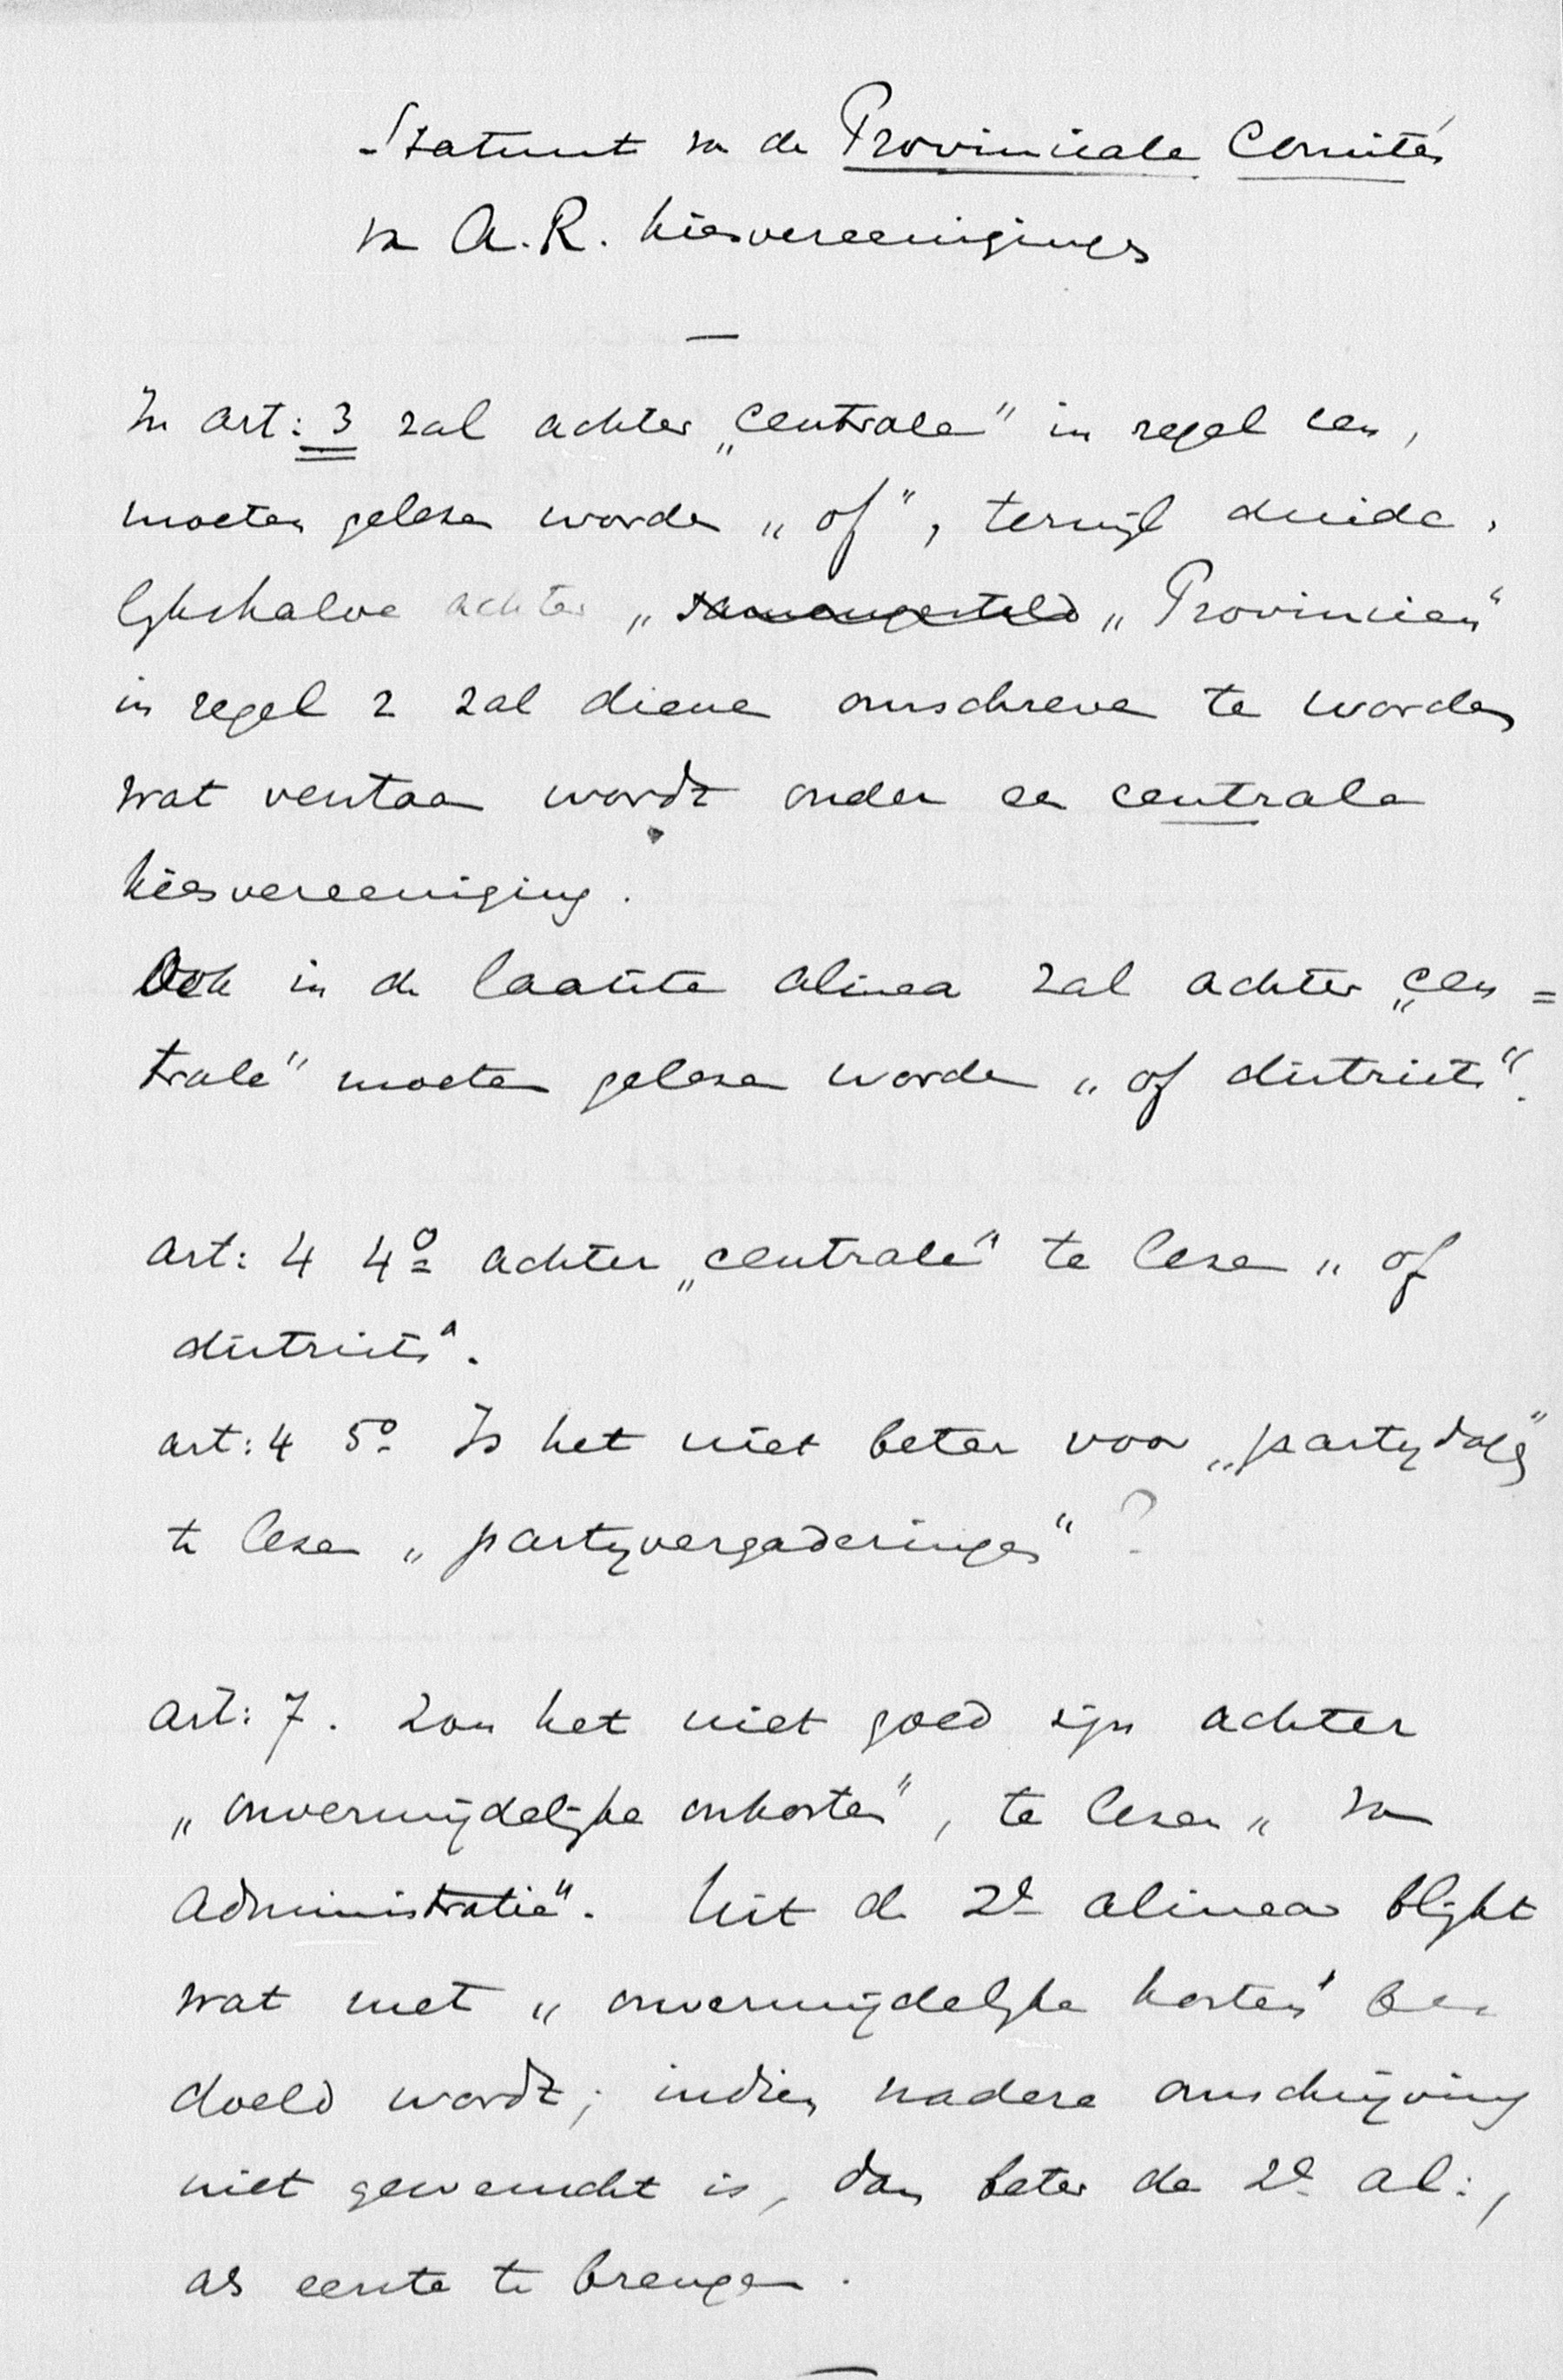 Statuut van de Provinciale Comités
van A.R. kiesvereenigingen
—
In art: 3 zal achter „centrale" in regel een,
moeten gelezen worden „of", terwijl duide-
lijkshalve achter „samengesteld „Provincien"
in regel 2 zal dienen omschreven te worden
wat verstaan wordt onder een centrale
kiesvereeniging.
Ook in de laatste alinea zal achter „cen=
trale" moeten gelezen worden „of districts".
art: 4 4º achter „centrale" te lezen „of
districts".
art: 4 5º Is het niet beter voor „partydag"
te lezen „partyvergaderingen" ?
art: 7. Zou het niet goed zijn achter
„onvermijdelijke onkosten", te lezen „van
administratie". Uit de 2e alinea blijkt
wat met „onvermijdelijke kosten" be-
doeld wordt; indien nadere omschrijving
niet gewenscht is, dan beter de 2e al:,
als eerste te brengen.
—